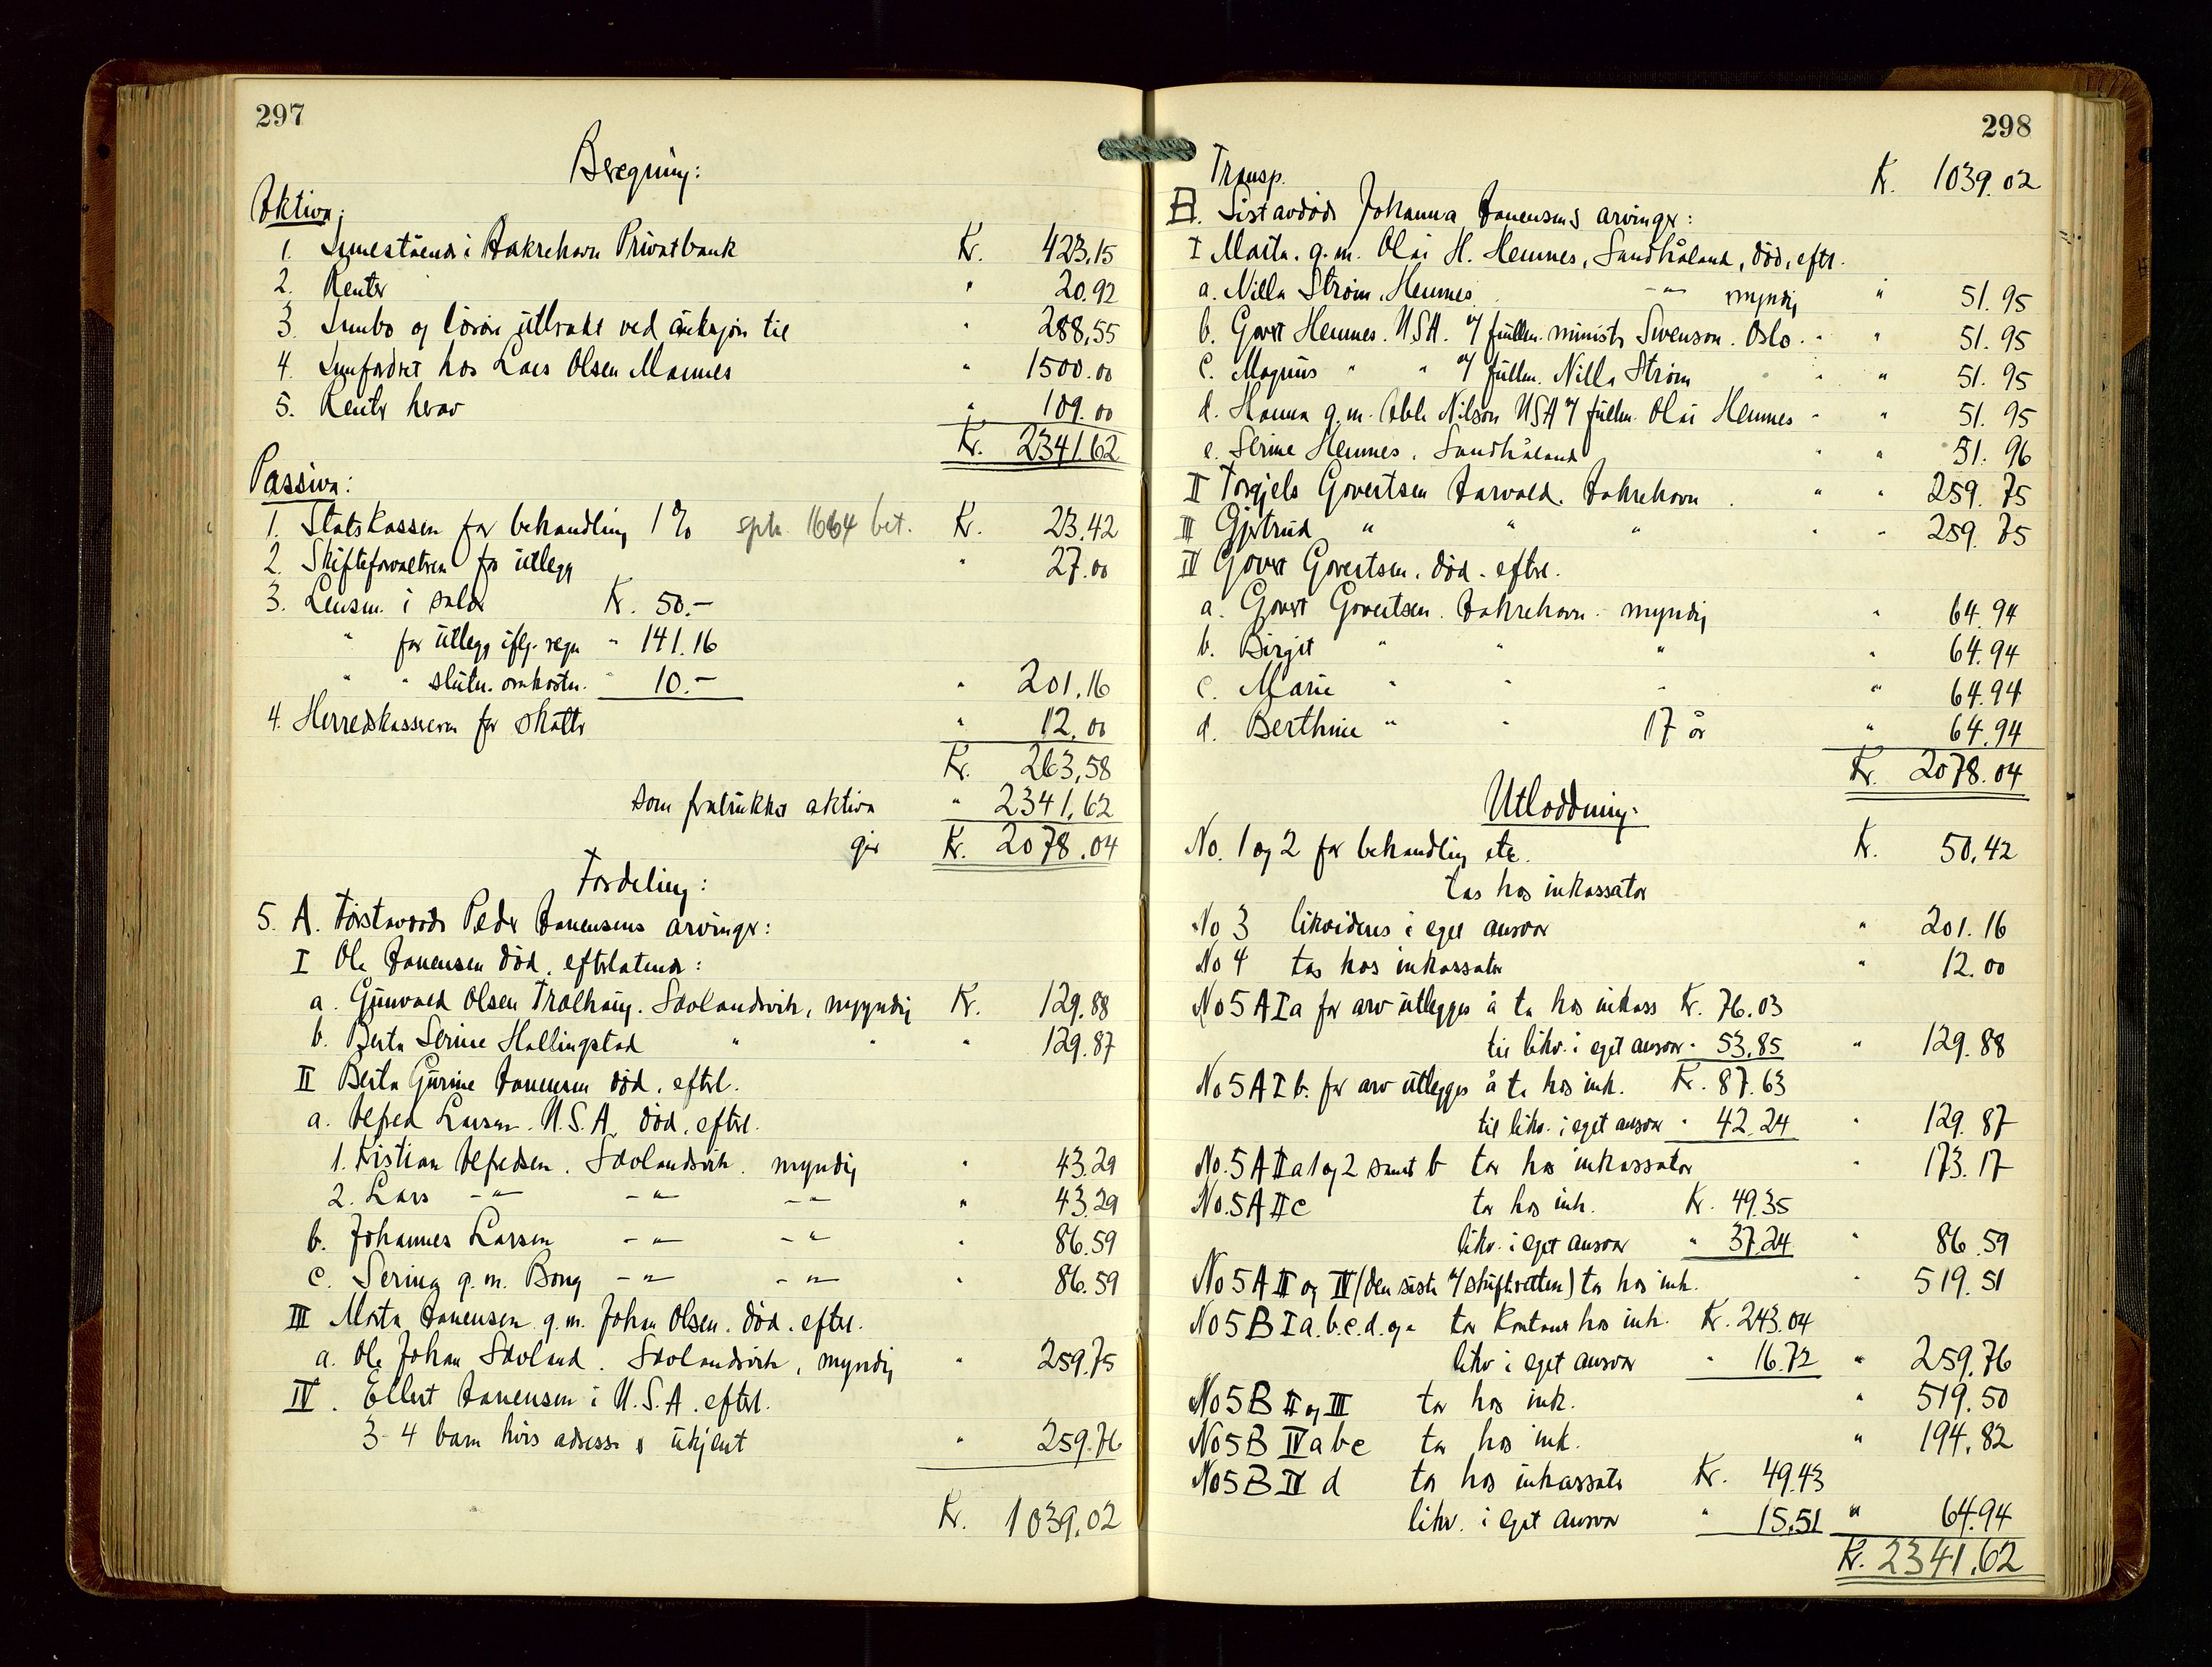 297
Beregning:
Aktiva:
1. Innestående i Aakrehavn Privatbank Kr. 423,15
2. Renter " 20.92
3. Innbo og løsøre utbrakt ved auksjon til " 288,55
4. Innfordret hos Lars Olsen Mannes " 1500.00
5. Renter herav " 109.00
Kr. 2341.62
Passiva:
1. Statskassen for behandling 1% sptr. 1664 bet. Kr. 23.42
2. Skifteforvalteren for utlegg " 27.00
3. Lensm. i salær Kr. 50.-
" for utlegg iflg. regn " 141.16
" " slutn. omkostn. " 10.- " 201.16
4. Herredskassereren for skatter " 12.00
Kr. 263,58
som fratrukket aktiva " 2341,62
gir Kr. 2078.04
Fordeling:
5. A. Førstavdøde Peder Hanensens arvinger:
I Ole Hanensen død. efterlatende:
a. Gunvald Olsen Tralhaug. Stolandsvik, myndig Kr. 129.88
b. Berta Serine Hallingstad " " " 129.87
II Berta Gurine Hanensen død. efterl.
a. Alfred Larsen. U.S.A. død. efterl.
1. Kristian Alfredsen. Stolandsvik. myndig " 43.29
2. Lars -"- -"- -"- " 43.29
b. Johannes Larsen -"- -"- " 86.59
c. Serina g.m. Bong -"- -"- " 86.59
III Marta Hanensen g.m. Johan Olsen. død. efterl.
a. Ole Johan Stoland. Stolandsvik, myndig " 259.75
IV. Ellert Hanensen i U.S.A. efterl.
3-4 barn hvis adresse er ukjent " 259.76
Kr. 1039,02
298
Transp. Kr. 1039.02
B. Sistavdøde Johanna Hanensens arvinger:
I Marta. g.m. Olai H. Hemnes, Sandhåland, død, efterl.
a. Nilla Strøm. Hemnes -"- myndig " 51.95
b. Govert Hemnes. USA. v/ fullm. minister Swenson. Oslo. " " 51.95
c. Magnus " " v/ fullm. Nilla Strøm " " 51.95
d. Hanna g.m. Able Nilson USA v/ fullm. Olai Hemnes " " 51.95
e. Serine Hemnes. Sandhåland " " 51.96
II Torgjels Govertsen Harvald. Aakrehavn " " 259.75
III Gjertrud " " " " " 259.75
IV Govert Govertsen. død. efterl.
a. Govert Govertsen. Aakrehavn. myndig " 64.94
b. Birgit " " " " 64.94
c. Marie " " " " 64.94
d. Berthine " " 17 år " 64.94
Kr. 2078.04
Utloddning:
No. 1 og 2 for behandling etc. Kr. 50,42
tas hos inkassator
No 3 likvideres i eget ansvar " 201.16
No 4 tas hos inkassator " 12.00
No 5 A I a for arv utlegges å ta hos inkass Kr. 76.03
til likv. i eget ansvar " 53.85 " 129.88
No 5 A I b. for arv utlegges å ta hos ink. Kr. 87.63
til likv. i eget ansvar " 42.24 " 129.87
No. 5 A II a 1 og 2 samt b tar hos inkassator " 173.17
No. 5 A II c tar hos ink. Kr. 49.35
likv. i eget ansvar " 37.24 " 86.59
No 5 A III og IV (den siste v/ skifteretten) tar hos ink. " 519.51
No 5 B I a. b. c. d. og e tar kontant hos ink. Kr. 243.04
likv i eget ansvar " 16.72 " 259.76
No 5 B II og III tar hos ink. " 519.50
No 5 B IV a b c tar hos ink. " 194.82
No 5 B IV d tar hos inkassator Kr. 49.43
likv. i eget ansvar " 15.51 " 64.94
Kr. 2341.62